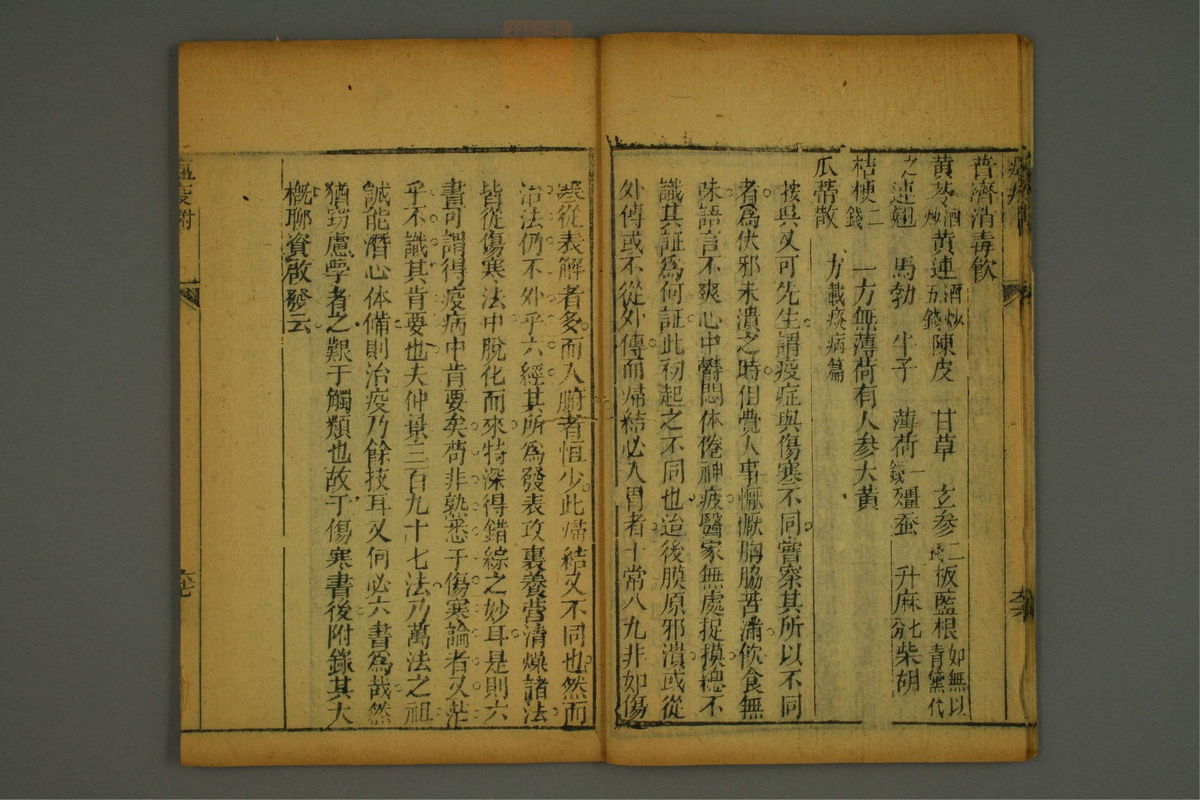 普濟消毒飲
黄芩酒炒黄連酒炒五錢陳皮 甘草 玄参二錢板藍根如無以青黛代
之連翹 馬勃 牛子 薄荷一錢殭蚕 升麻七分柴胡
桔梗二錢 一方無薄荷有人参大黄
瓜蒂散 方載痰病篇
按吳又可先生謂疫症與傷寒不同嘗察其所以不同
者為伏邪未潰之時但覺人事懨懨胸脇苦滿飲食無
味語言不爽心中欝悶体倦神疲醫家無處捉摸總不
識其証為何証此初起之不同也迨後膜原邪潰或從
外傳或不從外傳而歸結必入胃者十常八九非如傷
寒從表解者多而入腑者恒少此歸結又不同也然而
治法仍不外乎六經其所為發表攻裏養營清燥諸法
皆從傷寒法中脫化而來特深得錯綜之妙耳是則六
書可謂得疫病中肯要矣苟非熟悉于傷寒論者又茫
乎不識其肯要也夫仲景三百九十七法乃萬法之祖
誠能潛心体備則治疫乃餘技耳又何必六書為哉然
猶窃慮學者之艱于觸類也故于傷寒書後附錄其大
概聊資啟發云
瘟疫附